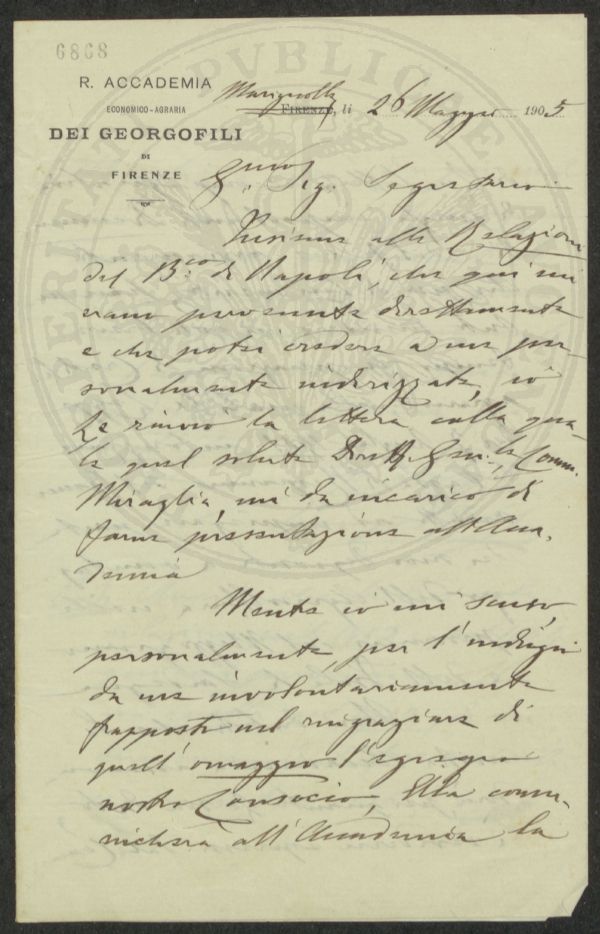 6868
R. ACCADEMIA
ECONOMICO-AGRARIA
DEI GEORGOFILI
DI
FIRENZE
Marignolle
FIRENZE, li 26 Maggio 1905
Sig. Segretario
Insieme alla Relazione
del B.co di Napoli, che qui mi
erano pervenute direttamente
e che potei credere a me per-
sonalmente indirizzate, io
Le rinvio la lettera colla qua-
le quel solerte Dirett. Gen.le, Comm.
Miraglia, mi da incarico di
farne presentazione all'Acca-
demia
Mentre io mi scuso,
personalmente, per l'indugio
da me involontariamente
frapposto nel ringraziare di
quell'omaggio l'egregio
nostro Consocio, Ella comu-
nicherà all'Accademia la